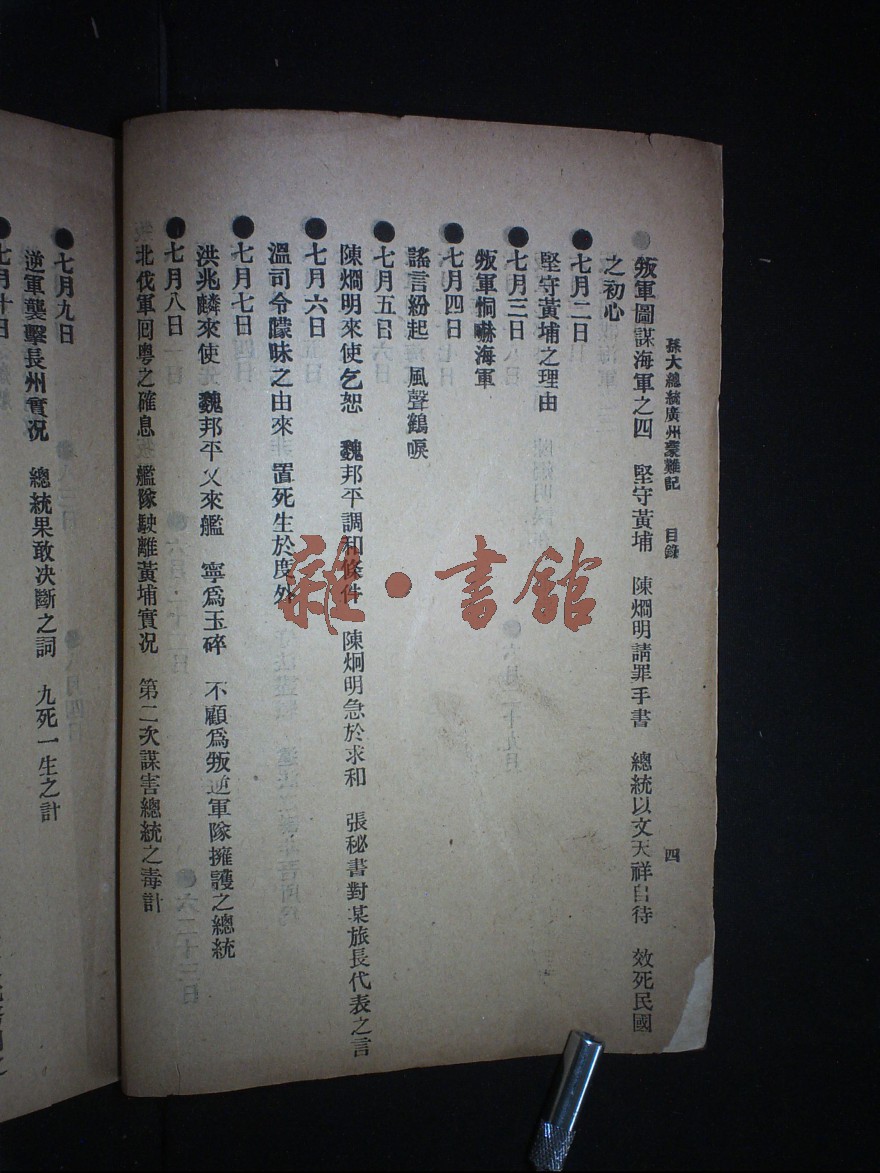 孫大總統廣州蒙難記　目錄　四
叛軍圖謀海軍之四　堅守黃埔　陳烱明請罪手書　總統以文天祥自待　效死民國
之初心
●七月二日
堅守黃埔之理由
●七月三日
叛軍恫嚇海軍
●七月四日
謠言紛起　風聲鶴唳
●七月五日
陳烱明來使乞恕　魏邦平調和條件　陳炯明急於求和　張秘書對某旅長代表之言
●七月六日
溫司令朦昧之由來　置死生於度外
●七月七日
洪兆麟來使　魏邦平又來艦　寧爲玉碎　不願爲叛逆軍隊擁護之總統
●七月八日
北伐軍回粵之確息　艦隊駛離黃埔實況　第二次謀害總統之毒計
●七月九日
逆軍襲擊長州實況　總統果敢決斷之詞　九死一生之計
●七月十日
雜·書館